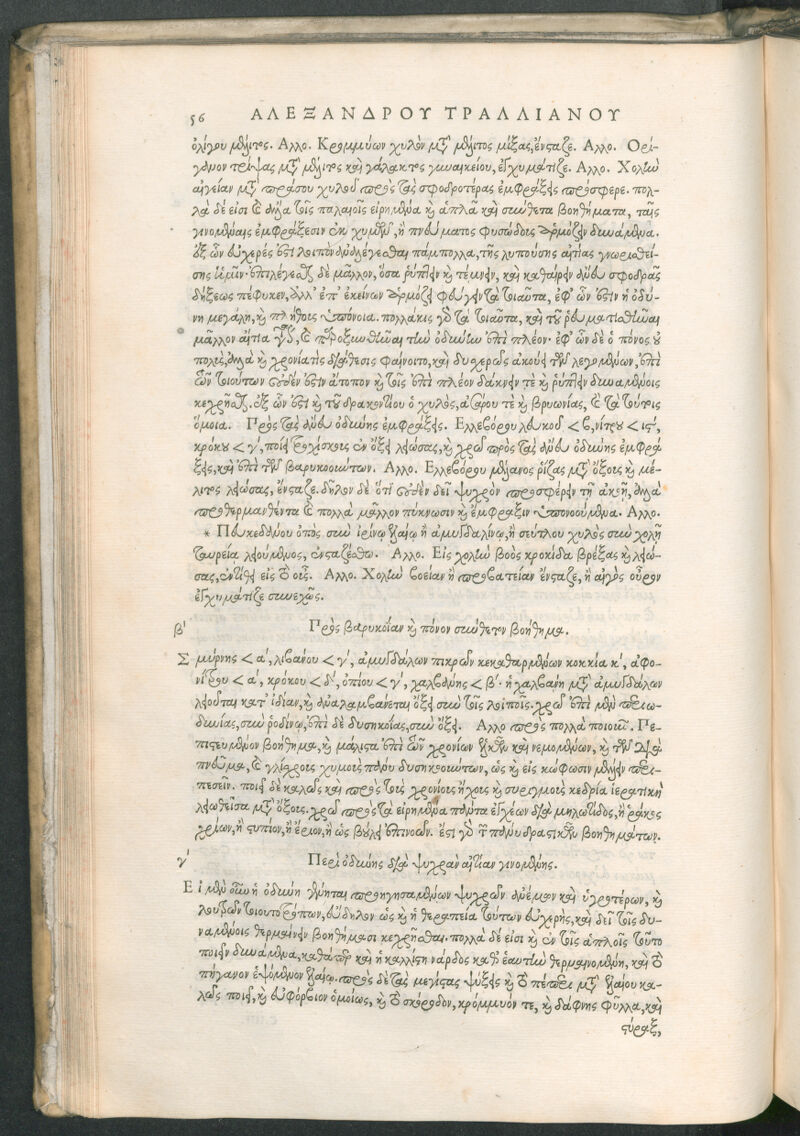 56 ΑΛΕΞΑΝΔΡΟΥ ΤΡΑΛΛΙΑΝΟΥ
ὀλίγου μέλιτος. Αλλο. Κρομμύων χυλὸν μετὰ μέλιτος μίξας, ἔνσταζε. Αλλο. Ορί-
γανον τρίψας μετὰ μέλιτος καὶ γάλακτος γυναικείου, ἐγχυμάτιζε. Αλλο. Χολὴν
αἰγείαν μετὰ πράσου χυλοῦ πρὸς τὰς σφοδροτέρας ἐμφράξεις πρόσφερε. πολ-
λὰ δέ εἰσι καὶ ἄλλα τοῖς παλαιοῖς εἰρημένα καὶ ἁπλᾶ καὶ σύνθετα βοηθήματα, ταῖς
γινομέναις ἐμφράξεσιν ἐκ χυμῶν, ἢ πνεύματος φυσώδους ἁρμόζειν δυνάμενα.
ἐξ ὧν εὐχερές ἐστι λοιπὸν ἐκλέγεσθαι πάμπολλα, τῆς λυπούσης αἰτίας γνωρισθεί-
σης ἡμῖν· ἐπιλέγεσθαι δὲ μᾶλλον, ὅσα ῥύπτειν καὶ τέμνειν, καὶ καθαίρειν ἄνευ σφοδρᾶς
δήξεως πέφυκεν, ἀλλ' ἐπ' ἐκείνων ἁρμόζει φεύγειν τὰ τοιαῦτα, ἐφ' ὧν ἐστιν ἡ ὀδύ-
νη μεγάλη, καὶ πλήθους ὑπόνοια. πολλάκις γὰρ τὰ τοιαῦτα, καὶ τοῦ ῥευματισθῆναι
μᾶλλον αἴτια γίνεται, καὶ παροξυνθῆναι τὴν ὀδύνην ἐπὶ πλέον· ἐφ' ὧν δὲ ὁ πόνος οὐ
πολὺς, ἀλλὰ καὶ χρονία τις διάθεσις φαίνοιτο, καὶ δυσχερῶς ἀκούει τῶν λεγομένων, ἐπὶ
τῶν τοιούτων οὐδέν ἐστιν ἄτοπον καὶ τοῖς ἐπὶ πλέον δάκνειν τε καὶ ῥύπτειν δυναμένοις
κεχρῆσθαι. ἐξ ὧν ἐστι καὶ τοῦ δρακοντίου ὁ χυλὸς, ἀσάρου τε καὶ βρυωνίας, καὶ τὰ τούτοις
ὅμοια. Πρὸς τὰς ἄνευ ὀδύνης ἐμφράξεις. Ελλεβόρου λευκοῦ < β, νίτρου < ις',
κρόκου < γ', ποίει τροχίσκους ἐν ὄξει λειώσας, καὶ χρῶ πρὸς τὰς ἄνευ ὀδύνης ἐμφρά
ξεις, καὶ ἐπὶ τῶν βαρυκοούντων. Αλλο. Ελλεβόρου μέλανος ῥίζας μετὰ ὄξους καὶ μέ-
λιτος λειώσας, ἔνσταζε. δῆλον δὲ ὅτι οὐδὲν δεῖ ψυχρὸν προσφέρειν τῇ ἀκοῇ, ἀλλὰ
προθερμανθέντα καὶ πολλὰ μᾶλλον πύκνωσιν καὶ ἔμφραξιν ὑπονοούμενα. Αλλο.
* Πευκεδάνου ὀπὸς σὺν ἰρίνῳ ἐλαίῳ ἢ ἀμυγδαλίνῳ, ἢ σεύτλου χυλὸς σὺν χολῇ
ταυρείᾳ λειούμενος, ἐνσταζέσθω. Αλλο. Εἰς χολὴν βοὸς κροκίδα βρέξας καὶ λειώ-
σας, ἐντίθει εἰς τὸ οὖς. Αλλο. Χολὴν βοείαν ἢ προβατείαν ἔνσταζε, ἢ αἰγὸς οὖρον
ἐγχυμάτιζε συνεχῶς.
β' Πρὸς βαρυκοΐαν καὶ πόνον σύνθετον βοήθημα.
Σμύρνης < α', λιβάνου < γ', ἀμυγδάλων πικρῶν κεκαθαρμένων κοκκία κ', ἀφρο-
νίτρου < α', κρόκου < δ', ὀπίου < γ', χαλβάνης < β'· ἡ χαλβάνη μετὰ ἀμυγδάλων
λειοῦται κατ' ἰδίαν, καὶ ἀναλαμβάνεται ὄξει σὺν τοῖς λοιποῖς. χρῶ ἐπὶ μὲν περιω-
δυνίας, σὺν ῥοδίνῳ, ἐπὶ δὲ δυσηκοΐας, σὺν ὄξει. Αλλο πρὸς πολλὰ ποιοῦν. Πε-
πιστευμένον βοήθημα, καὶ μάλιστα ἐπὶ τῶν χρονίων ἑλκῶν καὶ νεμομένων, καὶ τῶν διὰ
πνεῦμα, καὶ γλίσχρους χυμοὺς πάνυ δυσηκοούντων, ὡς καὶ εἰς κώφωσιν μέλλειν περι-
πεσεῖν. ποιεῖ δὲ καλῶς καὶ πρὸς τοὺς χρονίους ἤχους καὶ συριγμοὺς κεδρία ἱερατικὴ
λειωθεῖσα μετὰ ὄξους. χρῶ πρὸς τὰ εἰρημένα πάντα ἐγχέων διὰ μηλωτίδος, ἢ ῥάκος
χρίων, ἢ στυπίον, ἢ ἔριον, ἢ ὡς βούλει ἐπινοῶν. ἔστι γὰρ τῶν πάνυ δραστικῶν βοηθημάτων.
γ' Περὶ ὀδύνης διὰ ψυχρὰν αἰτίαν γινομένης.
Εἰ μὲν οὖν ἡ ὀδύνη γένηται προηγησαμένων ψυχρῶν ἀνέμων καὶ ὑγροτέρων, καὶ
λουτρῶν τοιουτοτρόπων, εὔδηλον ὡς καὶ ἡ θεραπεία τούτων εὐχερὴς, καὶ δεῖ τοῖς δυ-
ναμένοις θερμαίνειν βοηθήμασι κεχρῆσθαι. πολλὰ δέ εἰσι καὶ ἐν τοῖς ἁπλοῖς τοῦτο
ποιεῖν δυνάμενα, καθάπερ καὶ ἡ καλλίστη νάρδος καθ' ἑαυτὴν θερμαινομένη, καὶ τὸ
πήγανον ἑψόμενον ἐλαίῳ. πρὸς δὲ τὰς μεγίστας ψύξεις καὶ τὸ πέπερι μετὰ ἐλαίου κα-
λῶς ποιεῖ, καὶ εὐφόρβιον ὁμοίως, καὶ τὸ σκόροδον, κρόμμυόν τε, καὶ δάφνης φύλλα, καὶ
στύραξ,